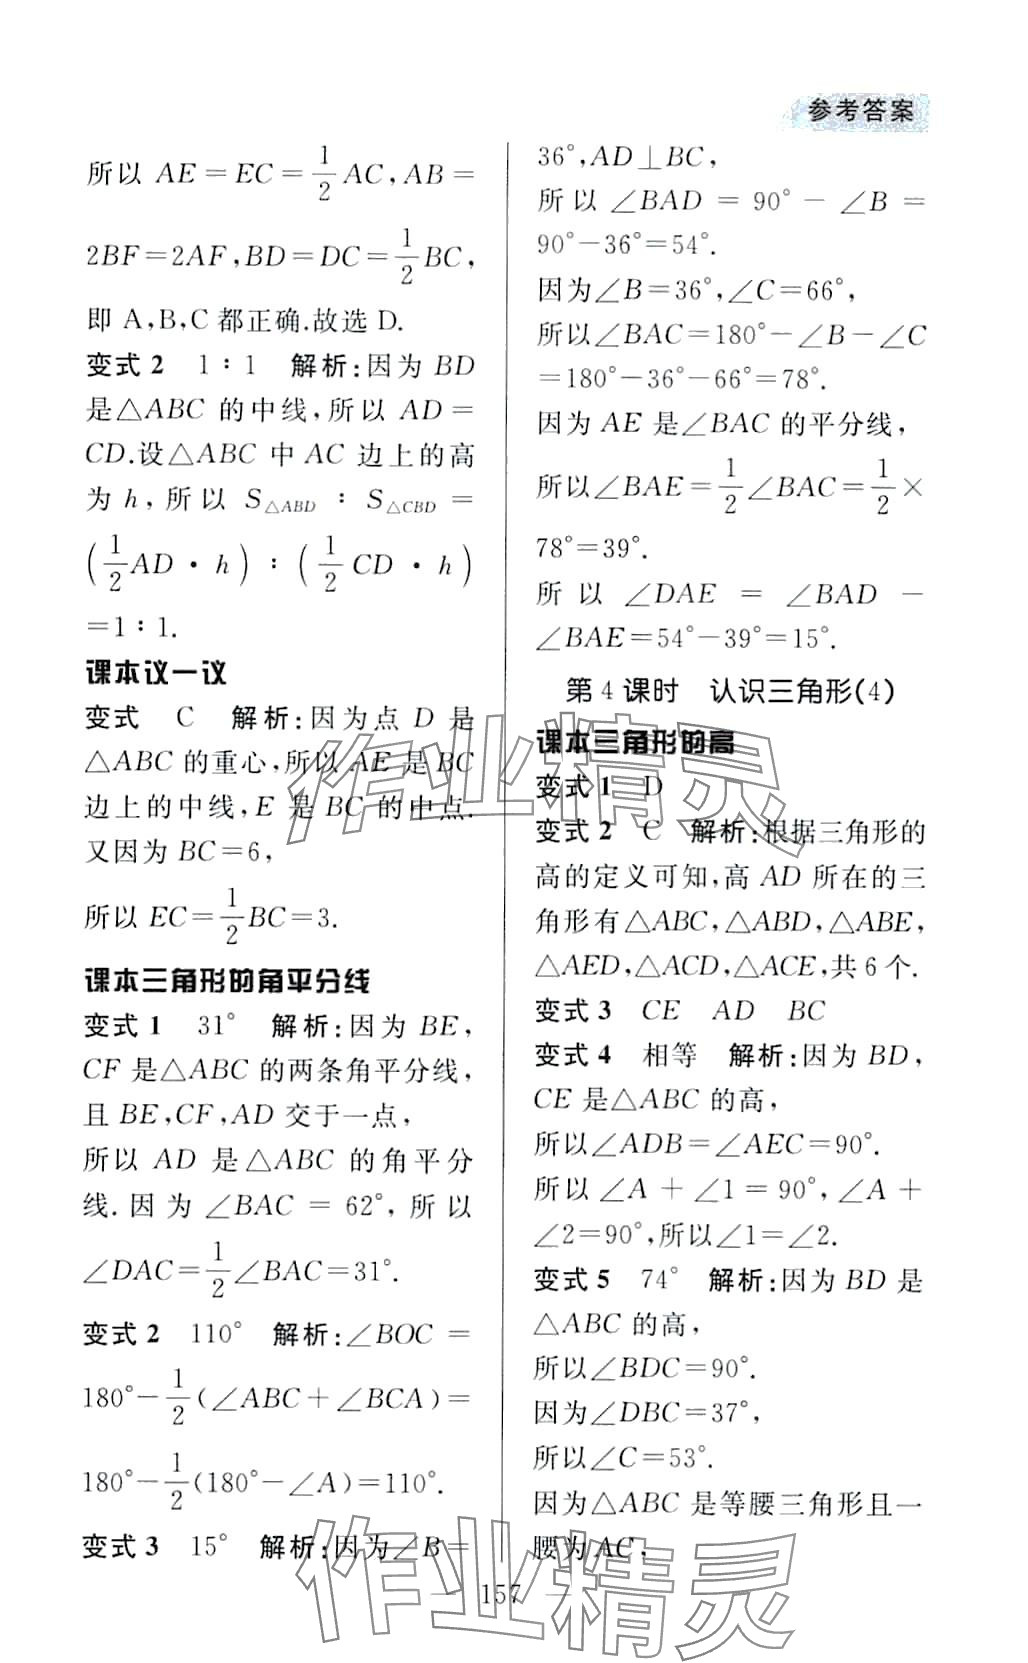 参考答案
所以 AE＝EC＝1/2 AC,AB＝
2BF＝2AF,BD＝DC＝1/2 BC,
即 A,B,C 都正确.故选 D.
变式 2 1∶1 解析:因为 BD
是△ABC 的中线,所以 AD＝
CD.设△ABC 中 AC 边上的高
为 h,所以 S△ABD ∶ S△CBD ＝
(1/2 AD・h)∶(1/2 CD・h)
＝1∶1.
课本议一议
变式 C 解析:因为点 D 是
△ABC 的重心,所以 AE 是 BC
边上的中线,E 是 BC 的中点.
又因为 BC＝6,
所以 EC＝1/2 BC＝3.
课本三角形的角平分线
变式 1 31° 解析:因为 BE,
CF 是△ABC 的两条角平分线,
且 BE,CF,AD 交于一点,
所以 AD 是△ABC 的角平分
线.因为∠BAC＝62°,所以
∠DAC＝1/2∠BAC＝31°.
变式 2 110° 解析:∠BOC＝
180°－1/2(∠ABC＋∠BCA)＝
180°－1/2(180°－∠A)＝110°.
变式 3 15° 解析:因为∠B＝
36°,AD⊥BC,
所以∠BAD＝90°－∠B＝
90°－36°＝54°.
因为∠B＝36°,∠C＝66°,
所以∠BAC＝180°－∠B－∠C
＝180°－36°－66°＝78°.
因为 AE 是∠BAC 的平分线,
所以∠BAE＝1/2∠BAC＝1/2×
78°＝39°.
所以∠DAE＝∠BAD－
∠BAE＝54°－39°＝15°.
第 4 课时 认识三角形(4)
课本三角形的高
变式 1 D
变式 2 C 解析:根据三角形的
高的定义可知,高 AD 所在的三
角形有△ABC,△ABD,△ABE,
△AED,△ACD,△ACE,共 6 个.
变式 3 CE AD BC
变式 4 相等 解析:因为 BD,
CE 是△ABC 的高,
所以∠ADB＝∠AEC＝90°.
所以∠A＋∠1＝90°,∠A＋
∠2＝90°,所以∠1＝∠2.
变式 5 74° 解析:因为 BD 是
△ABC 的高,
所以∠BDC＝90°.
因为∠DBC＝37°,
所以∠C＝53°.
因为△ABC 是等腰三角形且一
腰为 AC,
157
作业精灵
作业精灵